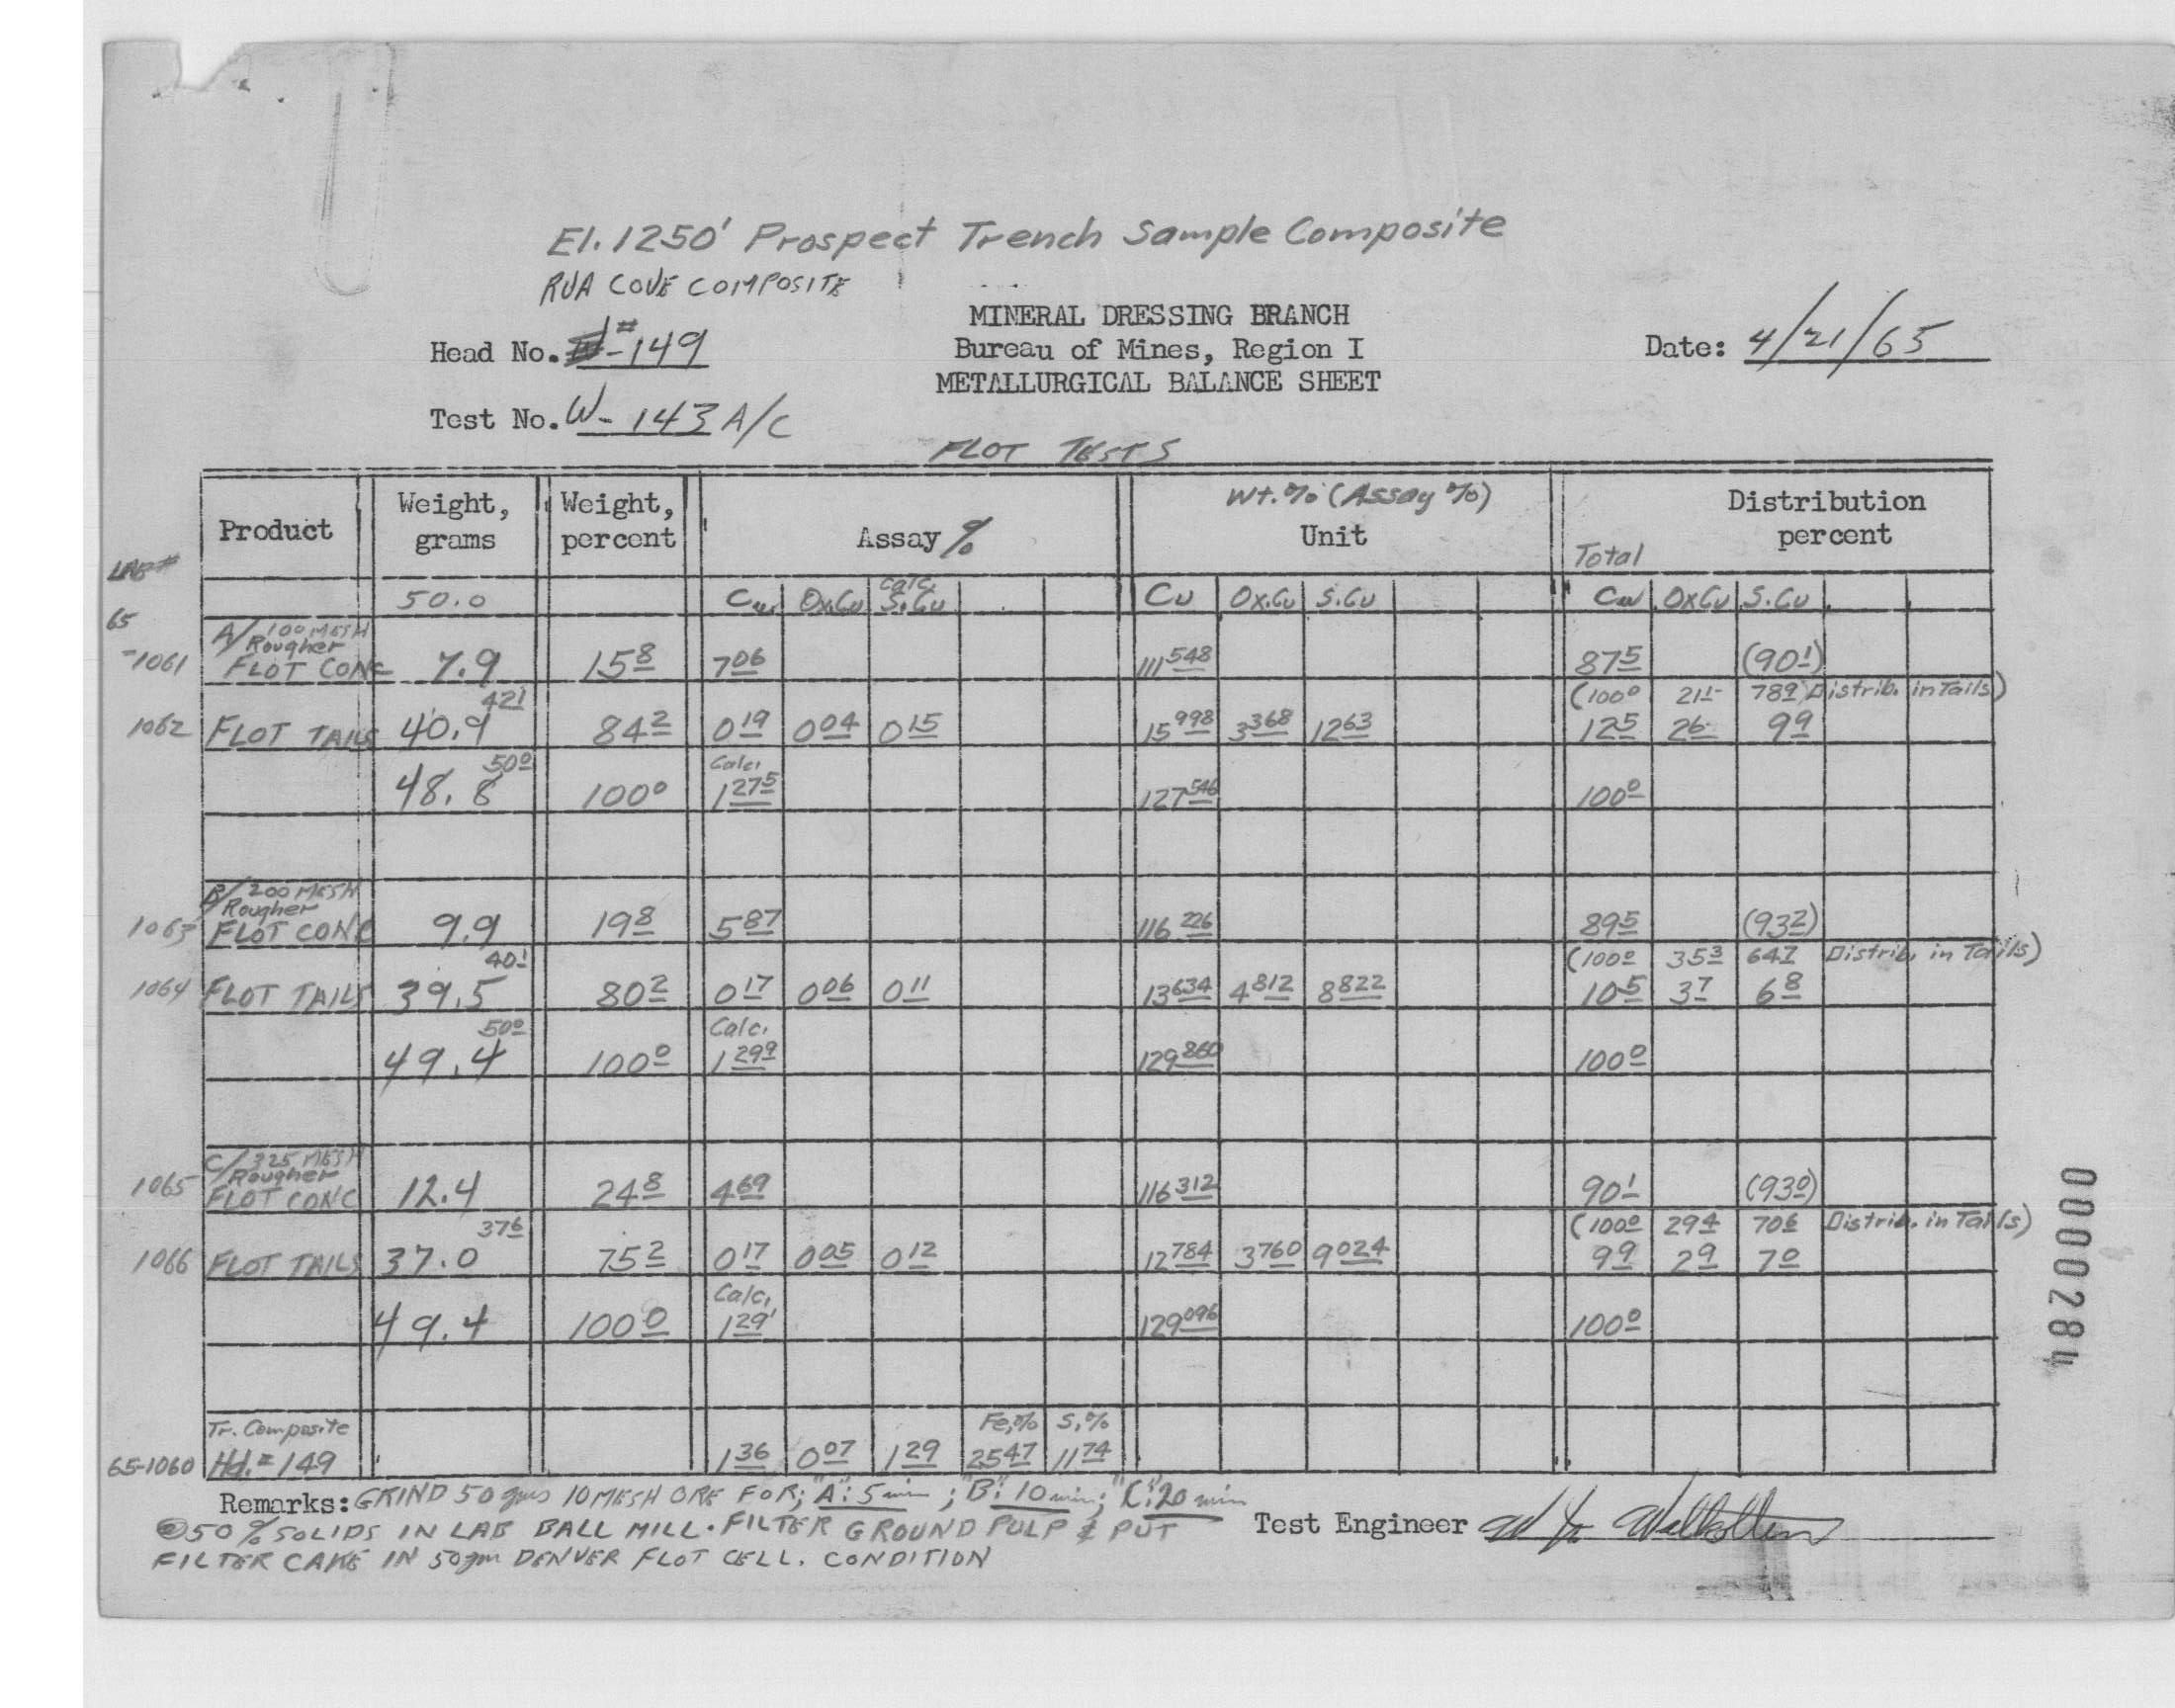 El. 1250' Prospect Trench Sample Composite
RUA COVE COMPOSITE
MINERAL DRESSING BRANCH
Head No. #-149 Bureau of Mines, Region I Date: 4/21/65
METALLURGICAL BALANCE SHEET
Test No. W-143 A/C
FLOT TESTS
Product Weight, grams Weight, percent Assay % Wt. % (Assay %) Unit Distribution percent
LAB # Total
50.0 Cu Ox.Cu Calc. S.Cu Cu Ox.Cu S.Cu Cu OxCu S.Cu
65
A/ 100 MESH
Rougher
-1061 FLOT CONC 7.9 15 8 7 06 111 548 87 5 (90 1)
42 1 (100 0 21 1 78 9 Distrib. in Tails)
1062 FLOT TAILS 40.9 84 2 0 19 0 04 0 15 15 998 3 368 12 63 12 5 2 6 9 9
50 0 Calc.
48.8 100 0 1 275 127 546 100 0
B/ 200 MESH
Rougher
1063 FLOT CONC 9.9 19 8 5 87 116 226 89 5 (93 2)
40 1 (100 0 35 3 64 7 Distrib. in Tails)
1064 FLOT TAILS 39.5 80 2 0 17 0 06 0 11 13 634 4 812 8 822 10 5 3 7 6 8
50 0 Calc.
49.4 100 0 1 299 129 860 100 0
C/ 325 MESH
Rougher
1065 FLOT CONC 12.4 24 8 4 69 116 312 90 1 (93 0)
37 6 (100 0 29 4 70 6 Distrib. in Tails)
1066 FLOT TAILS 37.0 75 2 0 17 0 05 0 12 12 784 3 760 9 024 9 9 2 9 7 0
Calc.
49.4 100 0 1 291 129 096 100 0
Tr. Composite Fe,% S,%
65-1060 Hd.# 149 1 36 0 07 1 29 25 47 11 74
Remarks: GRIND 50 gms 10 MESH ORE FOR; "A": 5 min; "B": 10 min; "C": 20 min
@ 50% SOLIDS IN LAB BALL MILL. FILTER GROUND PULP & PUT Test Engineer
FILTER CAKE IN 50 gm DENVER FLOT CELL. CONDITION
0000284